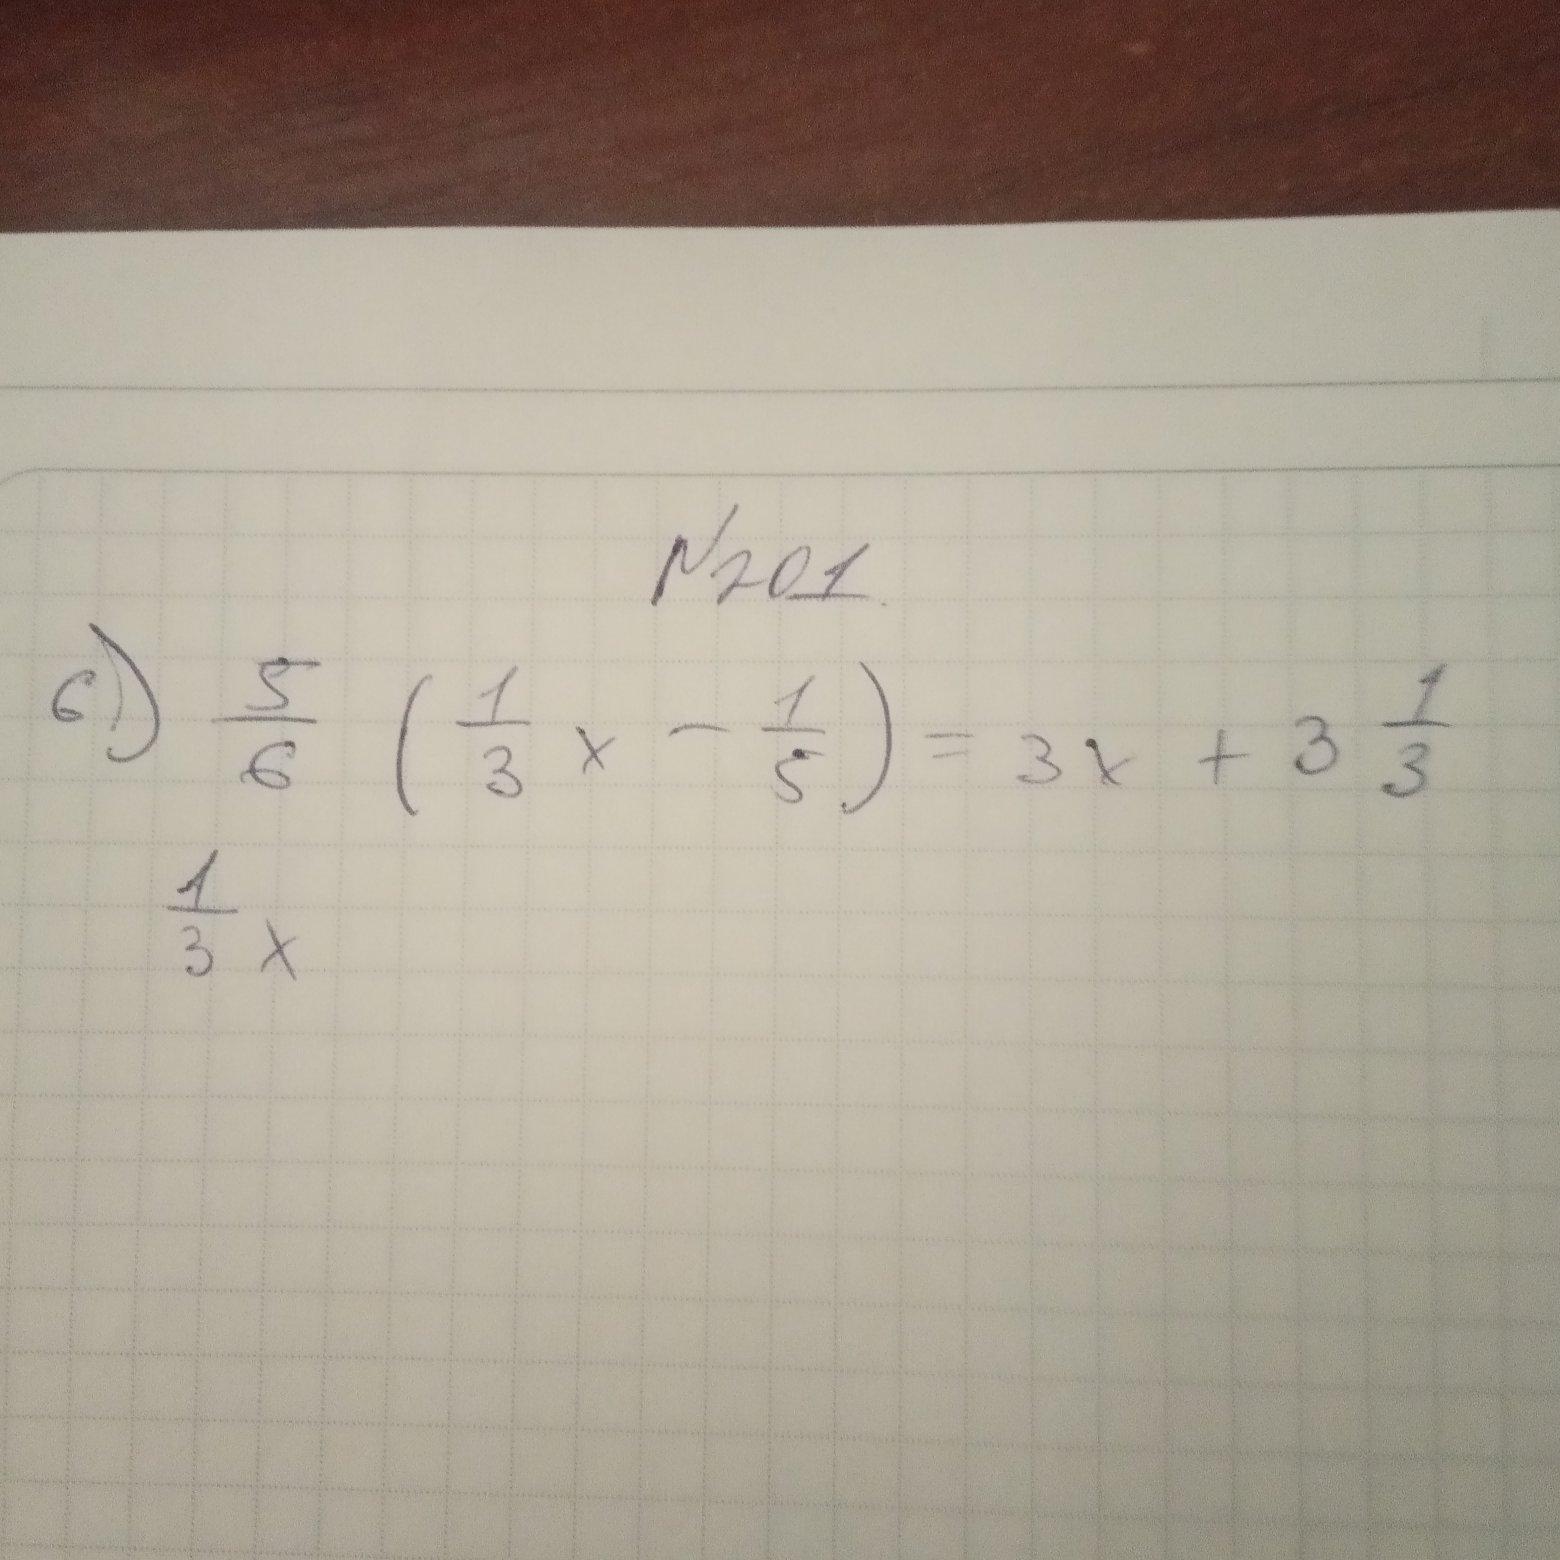 N201.
6) 5/6 (1/3 x - 1/5) = 3x + 3 1/3
1/3 x